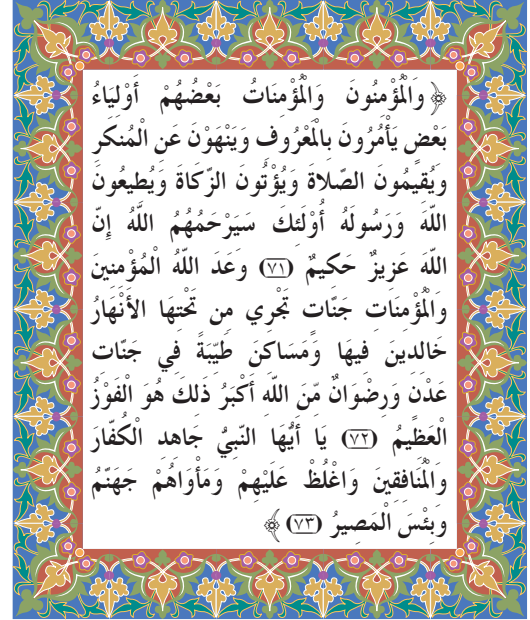 ﴿ وَالْمُؤْمنُونَ وَالْمُؤْمنَاتُ بَعْضُهُمْ أَوْليَاءُ
بَعْضٍ يَأْمُرُونَ بالْمَعْرُوف وَيَنْهَوْنَ عَن الْمُنكَر
وَيُقيمُونَ الصّلاةَ وَيُؤْتُونَ الزّكَاةَ وَيُطيعُونَ
اللّهَ وَرَسُولَهُ أُوْلَئكَ سَيَرْحَمُهُمُ اللّهُ إنّ
اللّهَ عَزيزٌ حَكيمٌ (٧١) وعَدَ اللّهُ الْمُؤْمنينَ
وَالْمُؤْمنَات جَنّات تَجْري من تَحْتهَا الأَنْهَارُ
خَالدينَ فيهَا وَمَسَاكنَ طَيّبَةً في جَنّات
عَدْن وَرضْوَانٌ مّنَ اللّه أَكْبَرُ ذَلكَ هُوَ الْفَوْزُ
الْعَظيمُ (٧٢) يَا أَيُّهَا النّبيُّ جَاهد الْكُفّارَ
وَالْمُنَافقينَ وَاغْلُظْ عَلَيْهمْ وَمَأْوَاهُمْ جَهَنّمُ
وَبئْسَ الْمَصيرُ (٧٣) ﴾